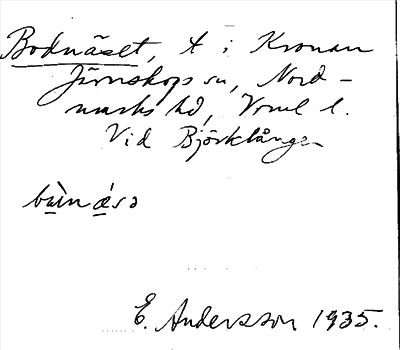 Bodnäset, t i Kronan
Järnskogs sn, Nord-
marks hd, Vrml l.
Vid Björklången
E. Andersson 1935.